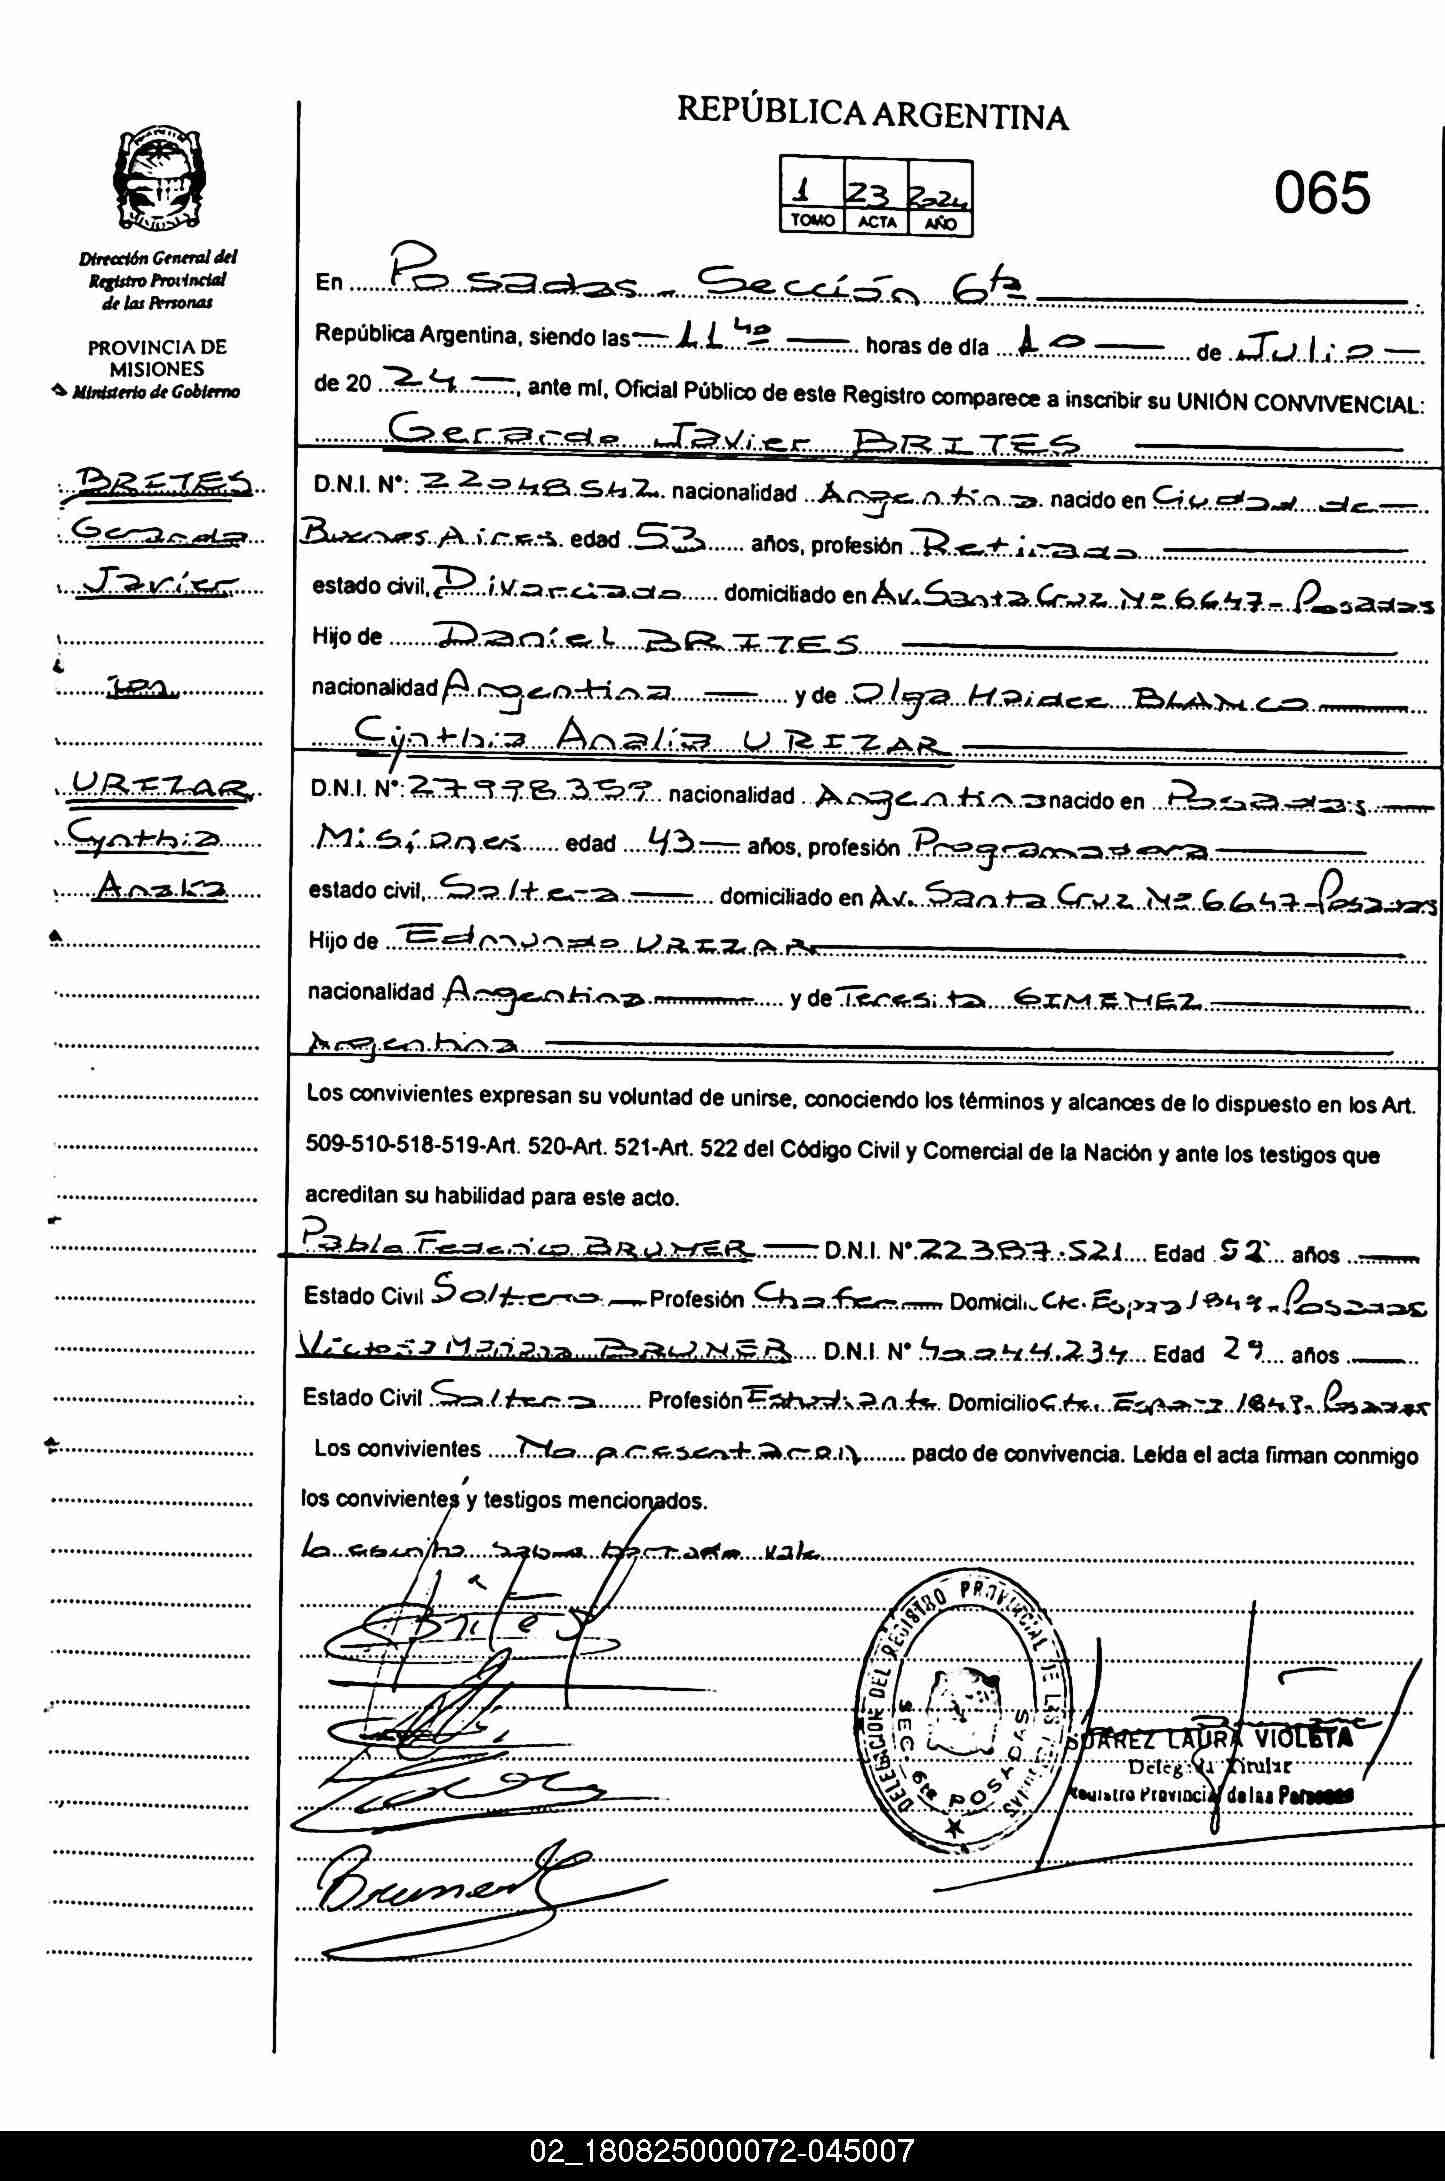 REPÚBLICA ARGENTINA
1 23 2024
TOMO ACTA AÑO
065
Dirección General del
Registro Provincial
de las Personas
PROVINCIA DE
MISIONES
Ministerio de Gobierno
En Posadas - Sección 6ta
República Argentina, siendo las 11 40 horas de día 10 de Julio
de 20 24, ante mí, Oficial Público de este Registro comparece a inscribir su UNIÓN CONVIVENCIAL:
Gerardo Javier BRITES
BRITES
Gerardo
Javier
con
URIZAR
Cynthia
Analia
D.N.I. N°: 22048542 nacionalidad Argentina nacido en Ciudad de
Buenos Aires edad 53 años, profesión Retirado
estado civil, Divorciado domiciliado en Av. Santa Cruz Nº 6647 - Posadas
Hijo de Daniel BRITES
nacionalidad Argentina y de Olga Haidee BLANCO
Cynthia Analía URIZAR
D.N.I. N°: 27998359 nacionalidad Argentina nacido en Posadas
Misiones edad 43 años, profesión Programadora
estado civil, Soltera domiciliado en Av. Santa Cruz Nº 6647 - Posadas
Hijo de Edmundo URIZAR
nacionalidad Argentina y de Teresita GIMENEZ
Argentina
Los convivientes expresan su voluntad de unirse, conociendo los términos y alcances de lo dispuesto en los Art.
509-510-518-519-Art. 520-Art. 521-Art. 522 del Código Civil y Comercial de la Nación y ante los testigos que
acreditan su habilidad para este acto.
Pablo Federico BRUNER D.N.I. N° 22.387.521 Edad 52 años
Estado Civil Soltero Profesión Chofer Domicili. Cte. Espora 1847 - Posadas
Victoria Mariana BRUNER D.N.I. N° 40.044.234 Edad 29 años
Estado Civil Soltera Profesión Estudiante Domicilio Cte. Espora 1847 - Posadas
Los convivientes No presentaron pacto de convivencia. Leída el acta firman conmigo
los convivientes y testigos mencionados.
Lo escrito sobre borrado vale
Brites
Bruner
DELEGACION DEL REGISTRO PROVINCIAL DE LAS PERSONAS
SEC. 6ta POSADAS
SUAREZ LAURA VIOLETA
Delegada Titular
Registro Provincial de las Personas
02_180825000072-045007